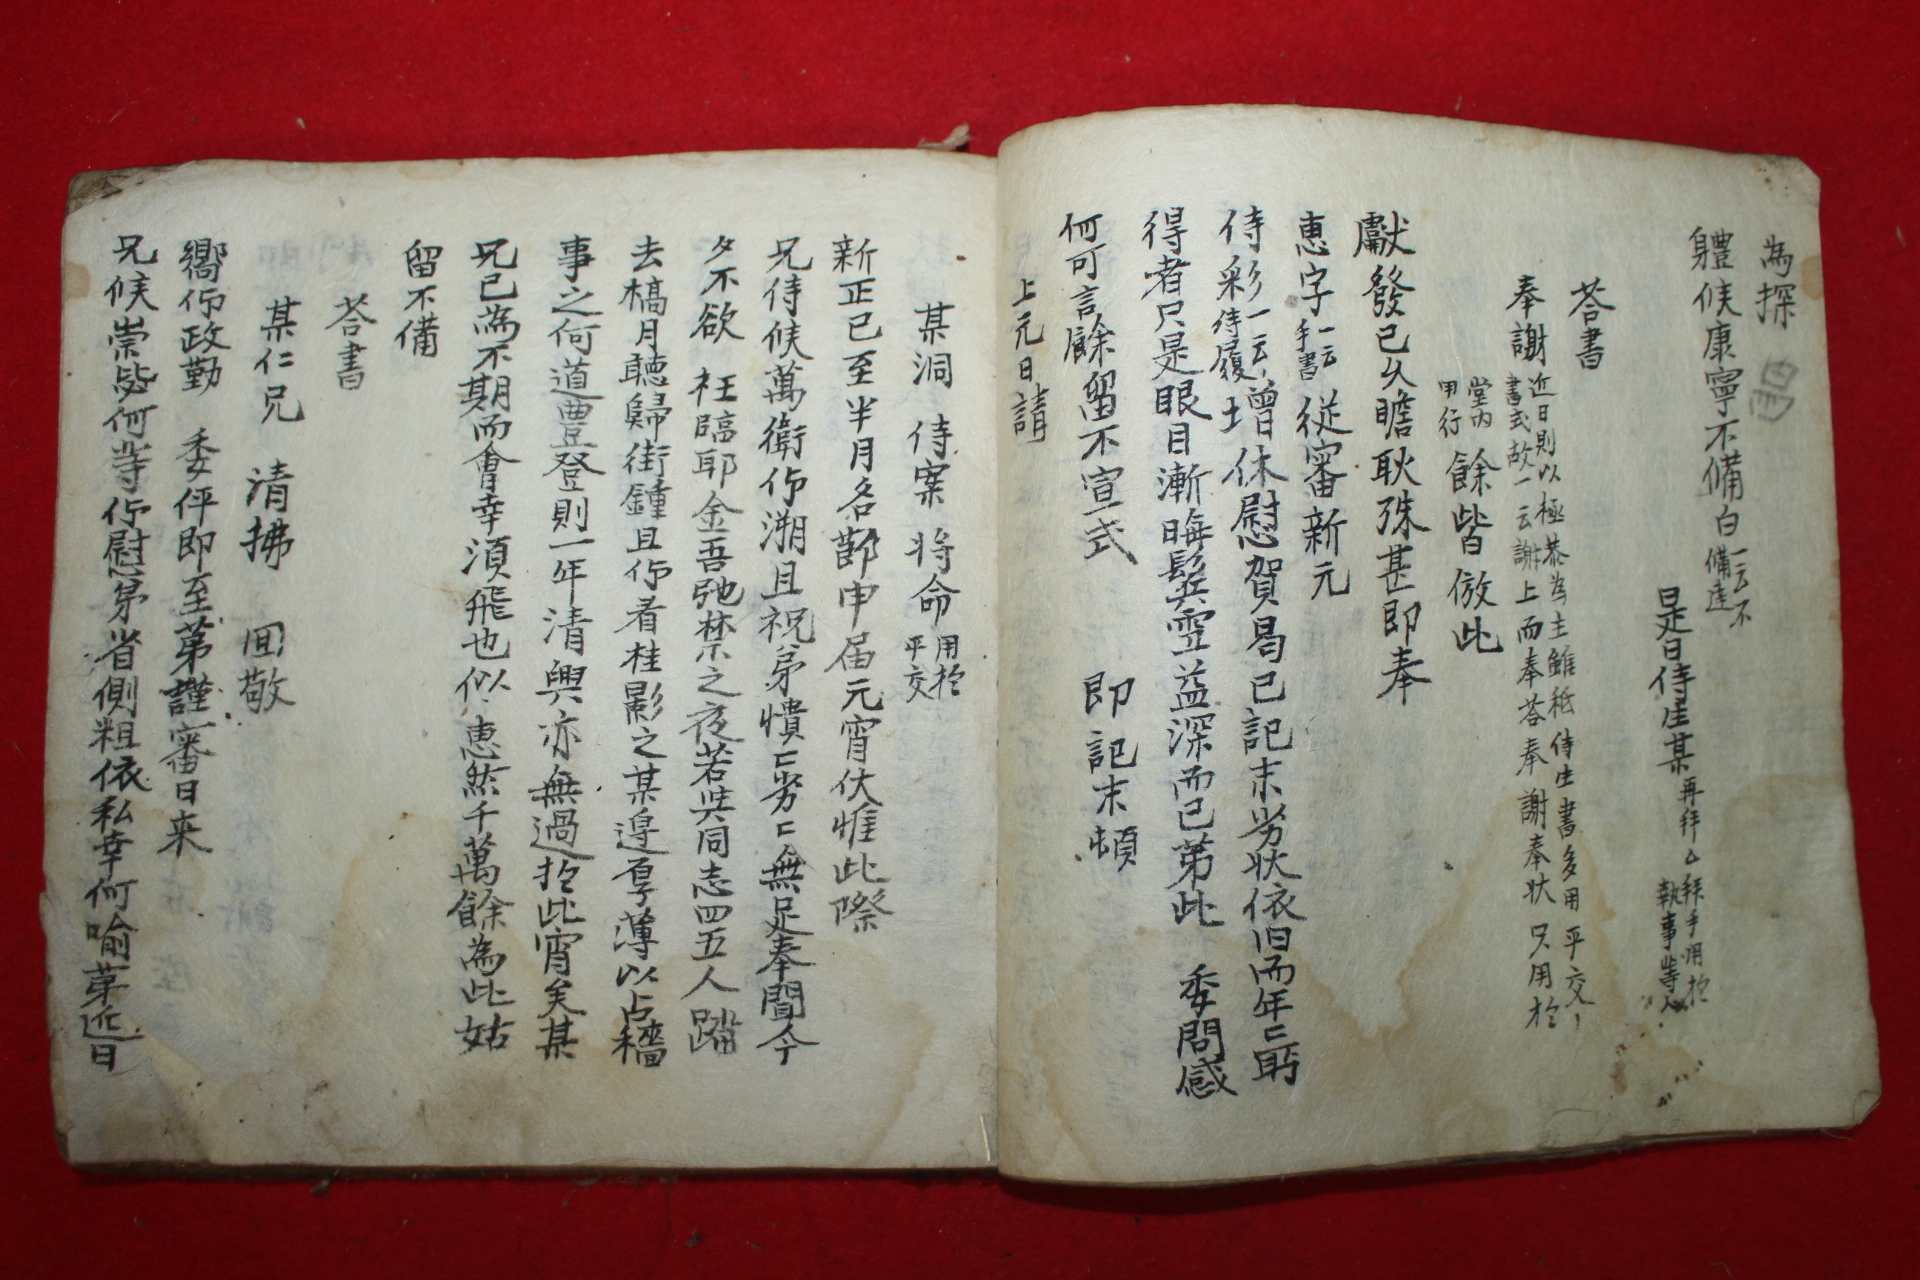 為探
體候康寧不備白一云不備達
是日侍生某再拜 拜手用於執事等人
答書
奉謝近日則以極恭為主雖秪侍生書多用平交書式故一云謝上而奉答奉謝奉狀只用於堂內用行餘皆倣此
獻發已久瞻耿殊甚即奉
惠字一云手書從審新元
侍彩一云侍履增休慰賀曷已記末劣狀依旧而年
得者只是眼目漸晦鬂雪益深而已第此 委問感
何可言餘留不宣式 即記末頓
上元日請
某洞 侍案 將命用於平交
新正已至半月名節申届元宵伏惟此際
兄侍候萬衛仰溯且祝弟憒〻劣〻無足奉聞今
夕不欲 枉臨耶金吾弛禁之夜若共同志四五人踏
去橋月聽歸街鍾且仰看桂影之某邊厚薄以占穡
事之何道豊登則一年清興亦無過於此宵矣某
兄已為不期而會幸須飛也似惠然千萬餘為此姑
留不備
答書
某仁兄 清拂 回敬
嚮仰政勤 委伻即至第謹審日来
兄候崇毖何等仰慰弟省側粗依私幸何喻第近日